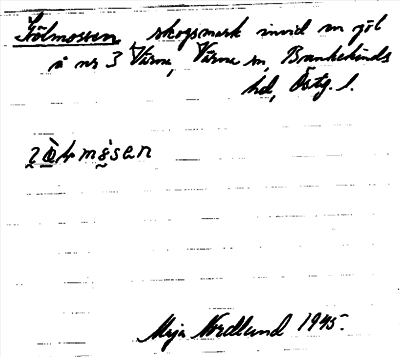 Kölmossen, skogsmark invid en göl
å nr 3 Värna, Värna sn, Bankekinds
hd, Östg. l.
Maja Nordlund 1945.